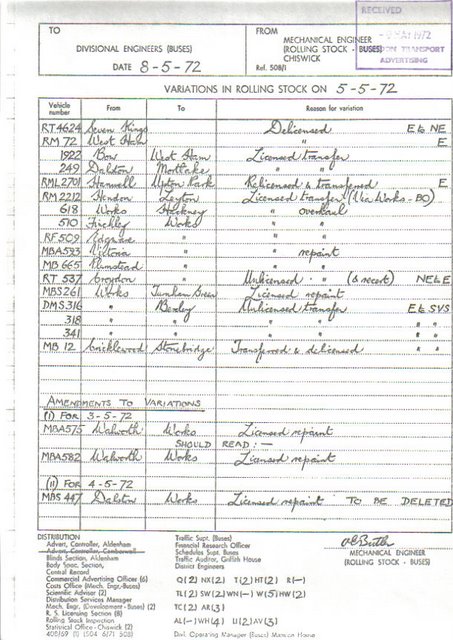 RECEIVED
MAY 1972
LONDON TRANSPORT
ADVERTISING
TO
DIVISIONAL ENGINEERS (BUSES)
DATE 8-5-72
FROM
MECHANICAL ENGINEER
(ROLLING STOCK - BUSES)
CHISWICK
Ref. 508/1
VARIATIONS IN ROLLING STOCK ON 5-5-72
Vehicle number From To Reason for variation
RT4624 Seven Kings Delicensed E to NE
RM 72 West Ham " E
1922 Bow West Ham Licensed transfer
249 Dalston Mortlake " "
RML2701 Hanwell Upton Park Relicensed & transferred E
RM 2212 Hendon Leyton Licensed transfer (Via Works - BO)
618 Works Hackney " overhaul
510 Finchley Works " "
RF 509 Edgware " " "
MBA593 Victoria " " repaint
MB 665 Plumstead " " "
RT 537 Croydon " Unlicensed " (& recert) NE to E
MBS261 Works Turnham Green Licensed repaint
DMS316 " Bexley Unlicensed transfer E to SVS
318 " " " " " "
341 " " " " " "
MB 12 Cricklewood Stonebridge Transferred & delicensed " "
AMENDMENTS TO VARIATIONS
(I) FOR 3-5-72
MBA575 Walworth Works Licensed repaint
SHOULD READ:-
MBA582 Walworth Works Licensed repaint
(II) FOR 4-5-72
MBS 447 Dalston Works Licensed repaint TO BE DELETED
DISTRIBUTION
Advert. Controller, Aldenham
Advert. Controller, Camberwell
Blinds Section, Aldenham
Body Spec. Section,
Central Record
Commercial Advertising Officer (6)
Costs Office (Mech. Engr.-Buses)
Scientific Advisor (2)
Distribution Services Manager
Mech. Engr. (Development - Buses) (2)
R. S. Licensing Section (8)
Rolling Stock Inspection
Statistical Office - Chiswick (2)
408/69 (1) (504 6/71 508)
Traffic Supt. (Buses)
Financial Research Officer
Schedules Supt. Buses
Traffic Auditor, Griffith House
District Engineers
Q(2) NX(2) T(2) HT(2) R(-)
TL(2) SW(2) WN(-) W(5) HW(2)
TC(2) AR(3)
AL(-) WH(4) U(2) AV(3)
Divl. Operating Manager (Buses) Mansion House
MECHANICAL ENGINEER
(ROLLING STOCK - BUSES)